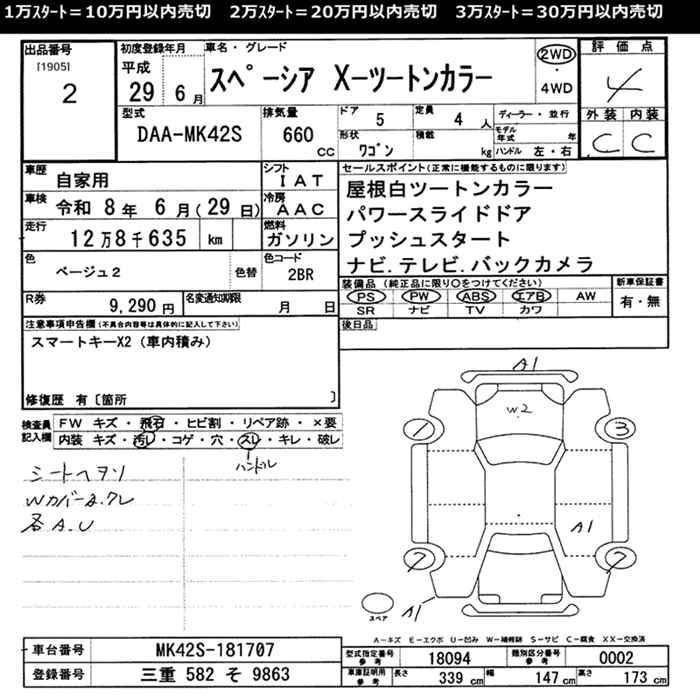 1万ｽﾀｰﾄ＝10万円以内売切　2万ｽﾀｰﾄ＝20万円以内売切　3万ｽﾀｰﾄ＝30万円以内売切
出品番号
[1905]
2
初度登録年月
平成
29 6月
車名・グレード
スペーシア X－ツートンカラー
2WD
・
4WD
評価点
4
外装 内装
C C
型式
DAA-MK42S
排気量
660 CC
ドア 5
定員 4 人
形状 ワゴン
積載 kg
ディーラー・並行
モデル年式 年
ハンドル 左・右
車歴
自家用
シフト
IAT
車検
令和 8年 6月(29日)
冷房
AAC
走行
12万8千635 km
燃料
ガソリン
色
ベージュ2
色替
色コード
2BR
R券
9,290 円
名変通知期限 月 日
セールスポイント(正常に機能するものに限ります)
屋根白ツートンカラー
パワースライドドア
プッシュスタート
ナビ.テレビ.バックカメラ
装備品(純正品に限り○をつけてください)
PS PW ABS エアB AW
SR ナビ TV カワ
新車保証書
有・無
後日品
注意事項申告欄(不具合内容等は具体的に記入して下さい)
スマートキーX2(車内積み)
修復歴 有〔箇所 〕
検査員
記入欄
FW キズ・飛石・ヒビ割・リペア跡・×要
内装 キズ・汚レ・コゲ・穴・スレ・キレ・破レ
ハンドル
シートヘタリ
Wカバーa.クレ
各A.U
A1
W2
1
3
A1
7
7
A1
スペア
A－キズ E－エクボ U－凹み W－補修跡 S－サビ C－腐食 XX－交換済
車台番号
MK42S-181707
登録番号
三重 582 そ 9863
型式指定番号
参考
18094
類別区分番号
参考
0002
車庫証明用
参考
長さ 339 cm
幅 147 cm
高さ 173 cm